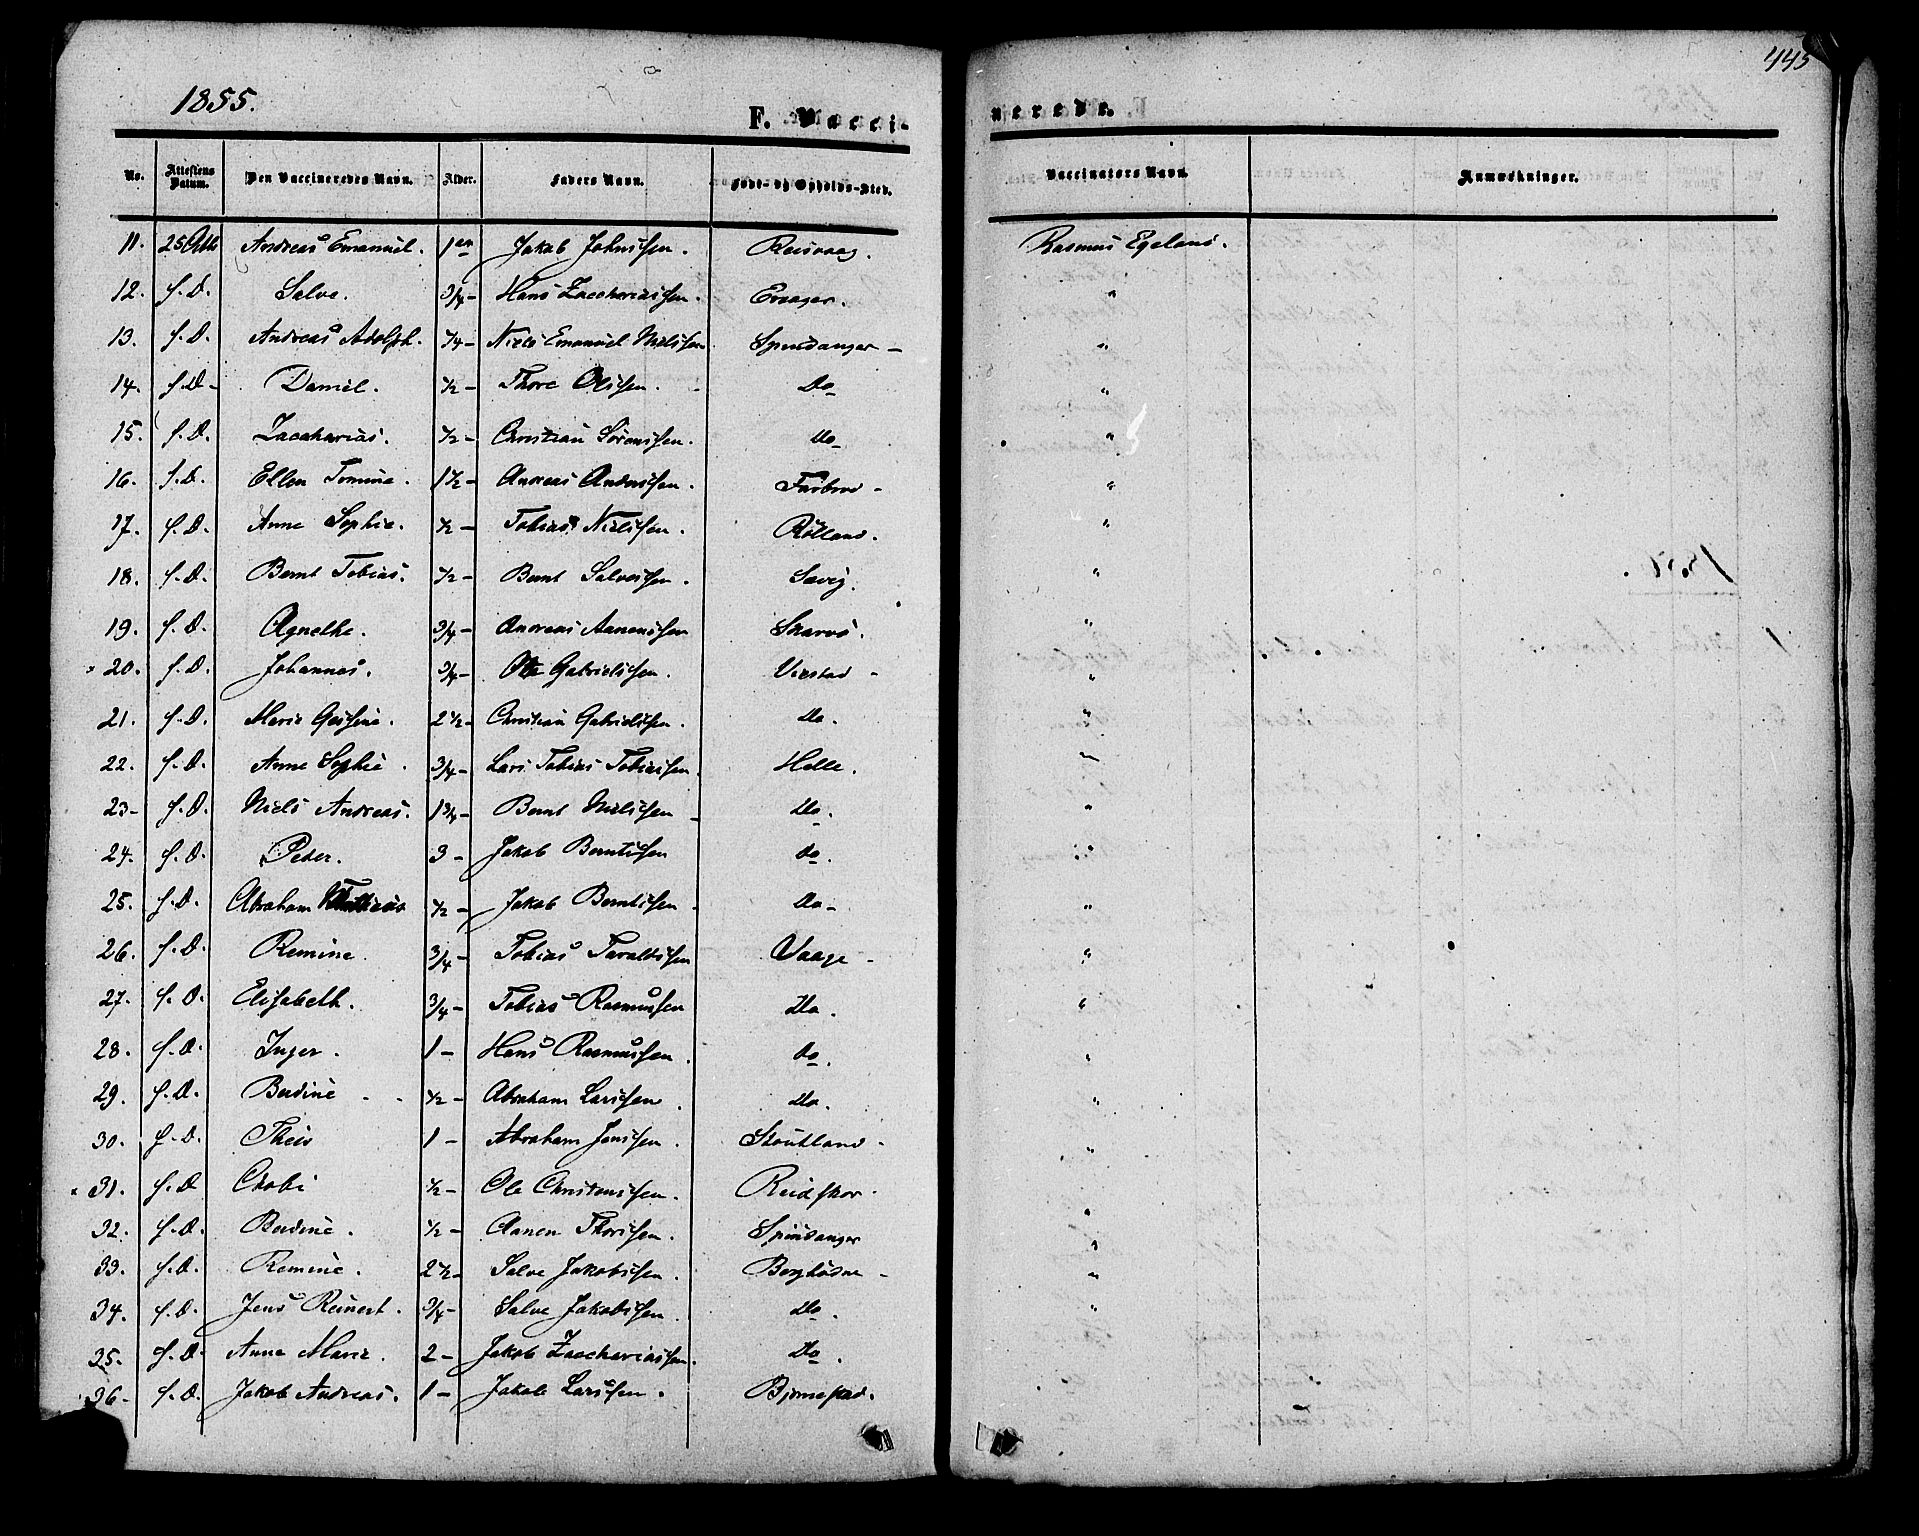 1855.
445
F. Vaccinerede.
No. Attestens Datum. Den Vaccineredes Navn. Alder. Faders Navn. Føde- og Opholds-Sted. Vaccinators Navn. Anmærkninger.
11. 25 Andreas Emanuel. 1 Jakob Johnssen. Reisvaag. Rasmus Egeland.
12. s. D. Salve. 3/4 - Hans Zacchariassen. "
13. s. D. Andreas Adolph. - Niels Emanuel Nielssen. Spindsanger - "
14. s. D - Daniel. 1/2 - Thore Olissen. Do "
15. s. D. Zaccharias. 1/2 - Christian Sørenssen. Do - "
16. s. D. Ellen Tomine. 1 1/2 - Andreas Anderssen. "
17. s. D. Anne Sophie. 1/2 - Tobias Nielssen. Rølland. "
18. s. D. Bernt Tobias. 1/2 - Bernt Salvessen. Sævig. "
19. s. D. Agnethe. 3/4 - Andreas Aanenssen Skarvø. "
20. s. D. Johannes. 3/4 - Ole Gabrielssen. Virstad - "
21. s. D. Marie Gusine. 2 1/2 - Christian Gabrielssen. Do. "
22. s. D. Anne Sophie. 3/4 - Lars Tobias Tobiassen. Helle. "
23 - s. D. Niels Andreas. 1 3/4 - Bernt Nielssen - Do. "
24. s. D. Peder. 3 - Jakob Berntssen do. "
25. s. D. Abraham Mathias 1/2 - Jakob Berntssen - Do - "
26. s. D. Remine. 3/4 - Tobias Taraldssen Vaage - "
27. s. D. Elisabeth. 3/4 - Tobias Rasmussen Do. "
28. s. D. Inger. 1 - Hans Rasmussen. do. "
29. s. D. Berdine 1/2 - Abraham Larssen. Do. "
30. s. D. Theis 1 - Abraham Jenssen. Stoutland - "
31. s. D 1/2 - Ole Christenssen. Reidskor. "
32. s. D. Berdine. 1/2 - Aanen Thorssen. Spindsanger "
33. s. D. Remine. 2 1/2 - Salve Jakobssen. "
34. s. D. Jens Reinert. 3/4 - Salve Jakobssen. Do. "
35. s. D. Anne Marie. 2 - Jakob Zacchariassen. Do.
36 - s. D. Jakob Andreas. 1 - Jakob Larssen. Bjørnestad.